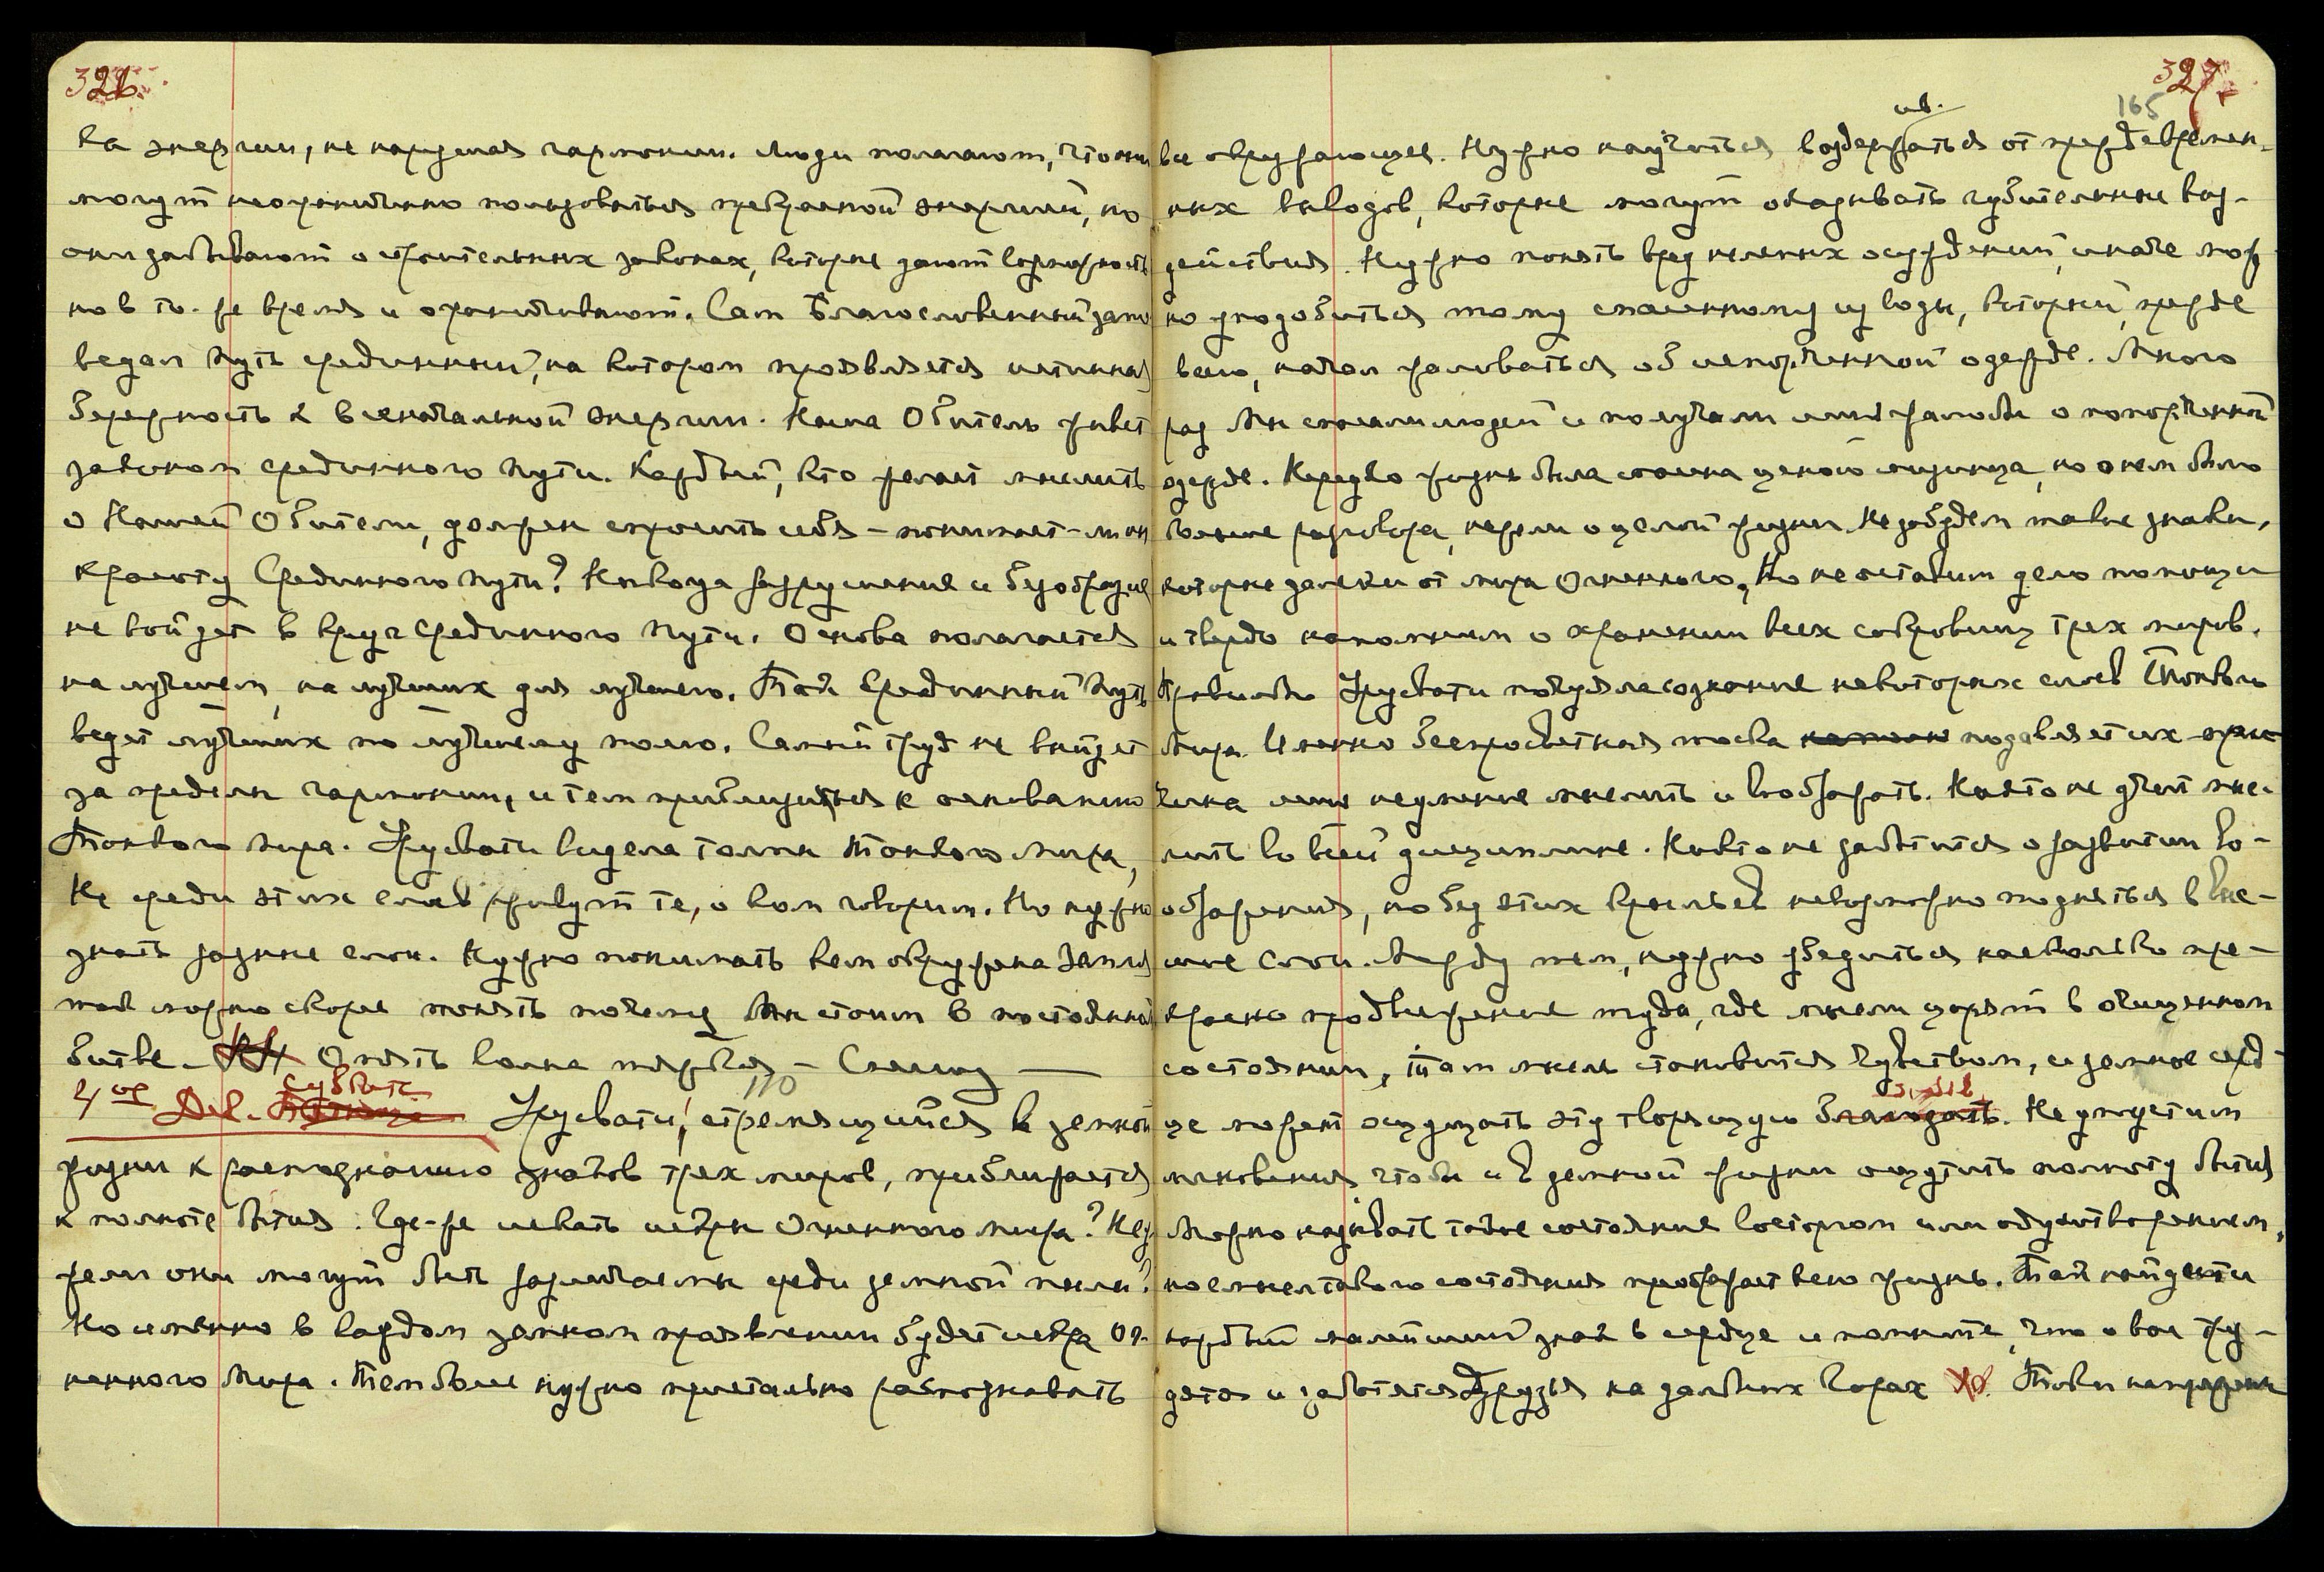 326.
ка энергии, не нарушая гармонии. Люди полагают, что они
могут неограниченно пользоваться прекрасной энергией, но
они забывают о строительных законах, которые дают возможность
но в то-же время и ограничивают. Сам Благословенный запо
ведал путь срединный, на котором проявляется истинная
бережность к всеначальной энергии. Наша Обитель живет
законом срединного пути. Каждый, кто желает мыслить
о Нашей Обители, должен спросить себя – понимает-ли он
красоту Срединного пути? Никогда разрушение и безобразие
не войдет в круг срединного пути. Основа полагается
на лучшем, на лучших для лучшего. Так Срединный путь
ведет лучших по лучшему полю. Самый труд не выйдет
за пределы гармонии, и тем приблизится к основанию
Тонкого Мира. Урусвати видела толпы Тонкого Мира,
Не среди этих слоев живут те, о ком говорим. Но нужно
знать разные слои. Нужно понимать кем окружена Земля
так можно скорее понять почему Мы стоим в постоянной
битве. Опять волна тяжкая – Слышу —
4ое Дек. Суббота 110 Урусвати, стремящийся в земной
жизни к распознанию знаков трех миров, приближается
к полноте бытия. Где-же искать искры Огненного мира? Неу
жели они могут быть различаемы среди земной пыли?
Но именно в каждом земном проявлении будет искра Ог-
ненного Мира. Тем более нужно пристально распознавать
327.
165
ив.
все окружающее. Нужно научиться воздержаться от преждевремен-
ных выводов, которые могут оказывать губительные воз-
действия. Нужно понять вред нелепых осуждений, иначе мож
но уподобиться тому спасенному из воды, который, прежде
всего, начал жаловаться об испорченной одежде. Много
раз Мы спасали людей и получали лишь жалобы о попорченной
одежде. Нередко жизнь была спасена ценою мизинца, но о нем было
больше разговора, нежели о целой жизни. Не забудем такие знаки,
которые далеки от мира Огненного. Но не оставим дело помощи
и твердо напомним о хранении всех сокровищ трех миров.
Правильно Урусвати почуяла сознание некоторых слоев Тонкого
Мира. Именно беспросветная тоска подавляет их при
чина лишь неумение мыслить и воображать. Никто не учит мыс-
лить во всей дисциплине. Никто не заботится о развитии во-
ображения, но без этих крыльев невозможно подняться в Выс-
шие Слои. Между тем, нужно убедиться насколько пре-
красно продвижение туда, где мысли царят в очищенном
состоянии, там мысль становится чувством, и земное серд-
це может ощущать эту творящую благодать. Не упустим
мгновения чтобы и в земной жизни ощутить полноту бытия
Можно называть такое состояние восторгом или одухотворением,
но смысл такого состояния преображает всю жизнь. Так найдете
каждый малейший знак в сердце и помните, что о вас тру-
дятся и заботятся Друзья на дальних Горах Токи напряжены